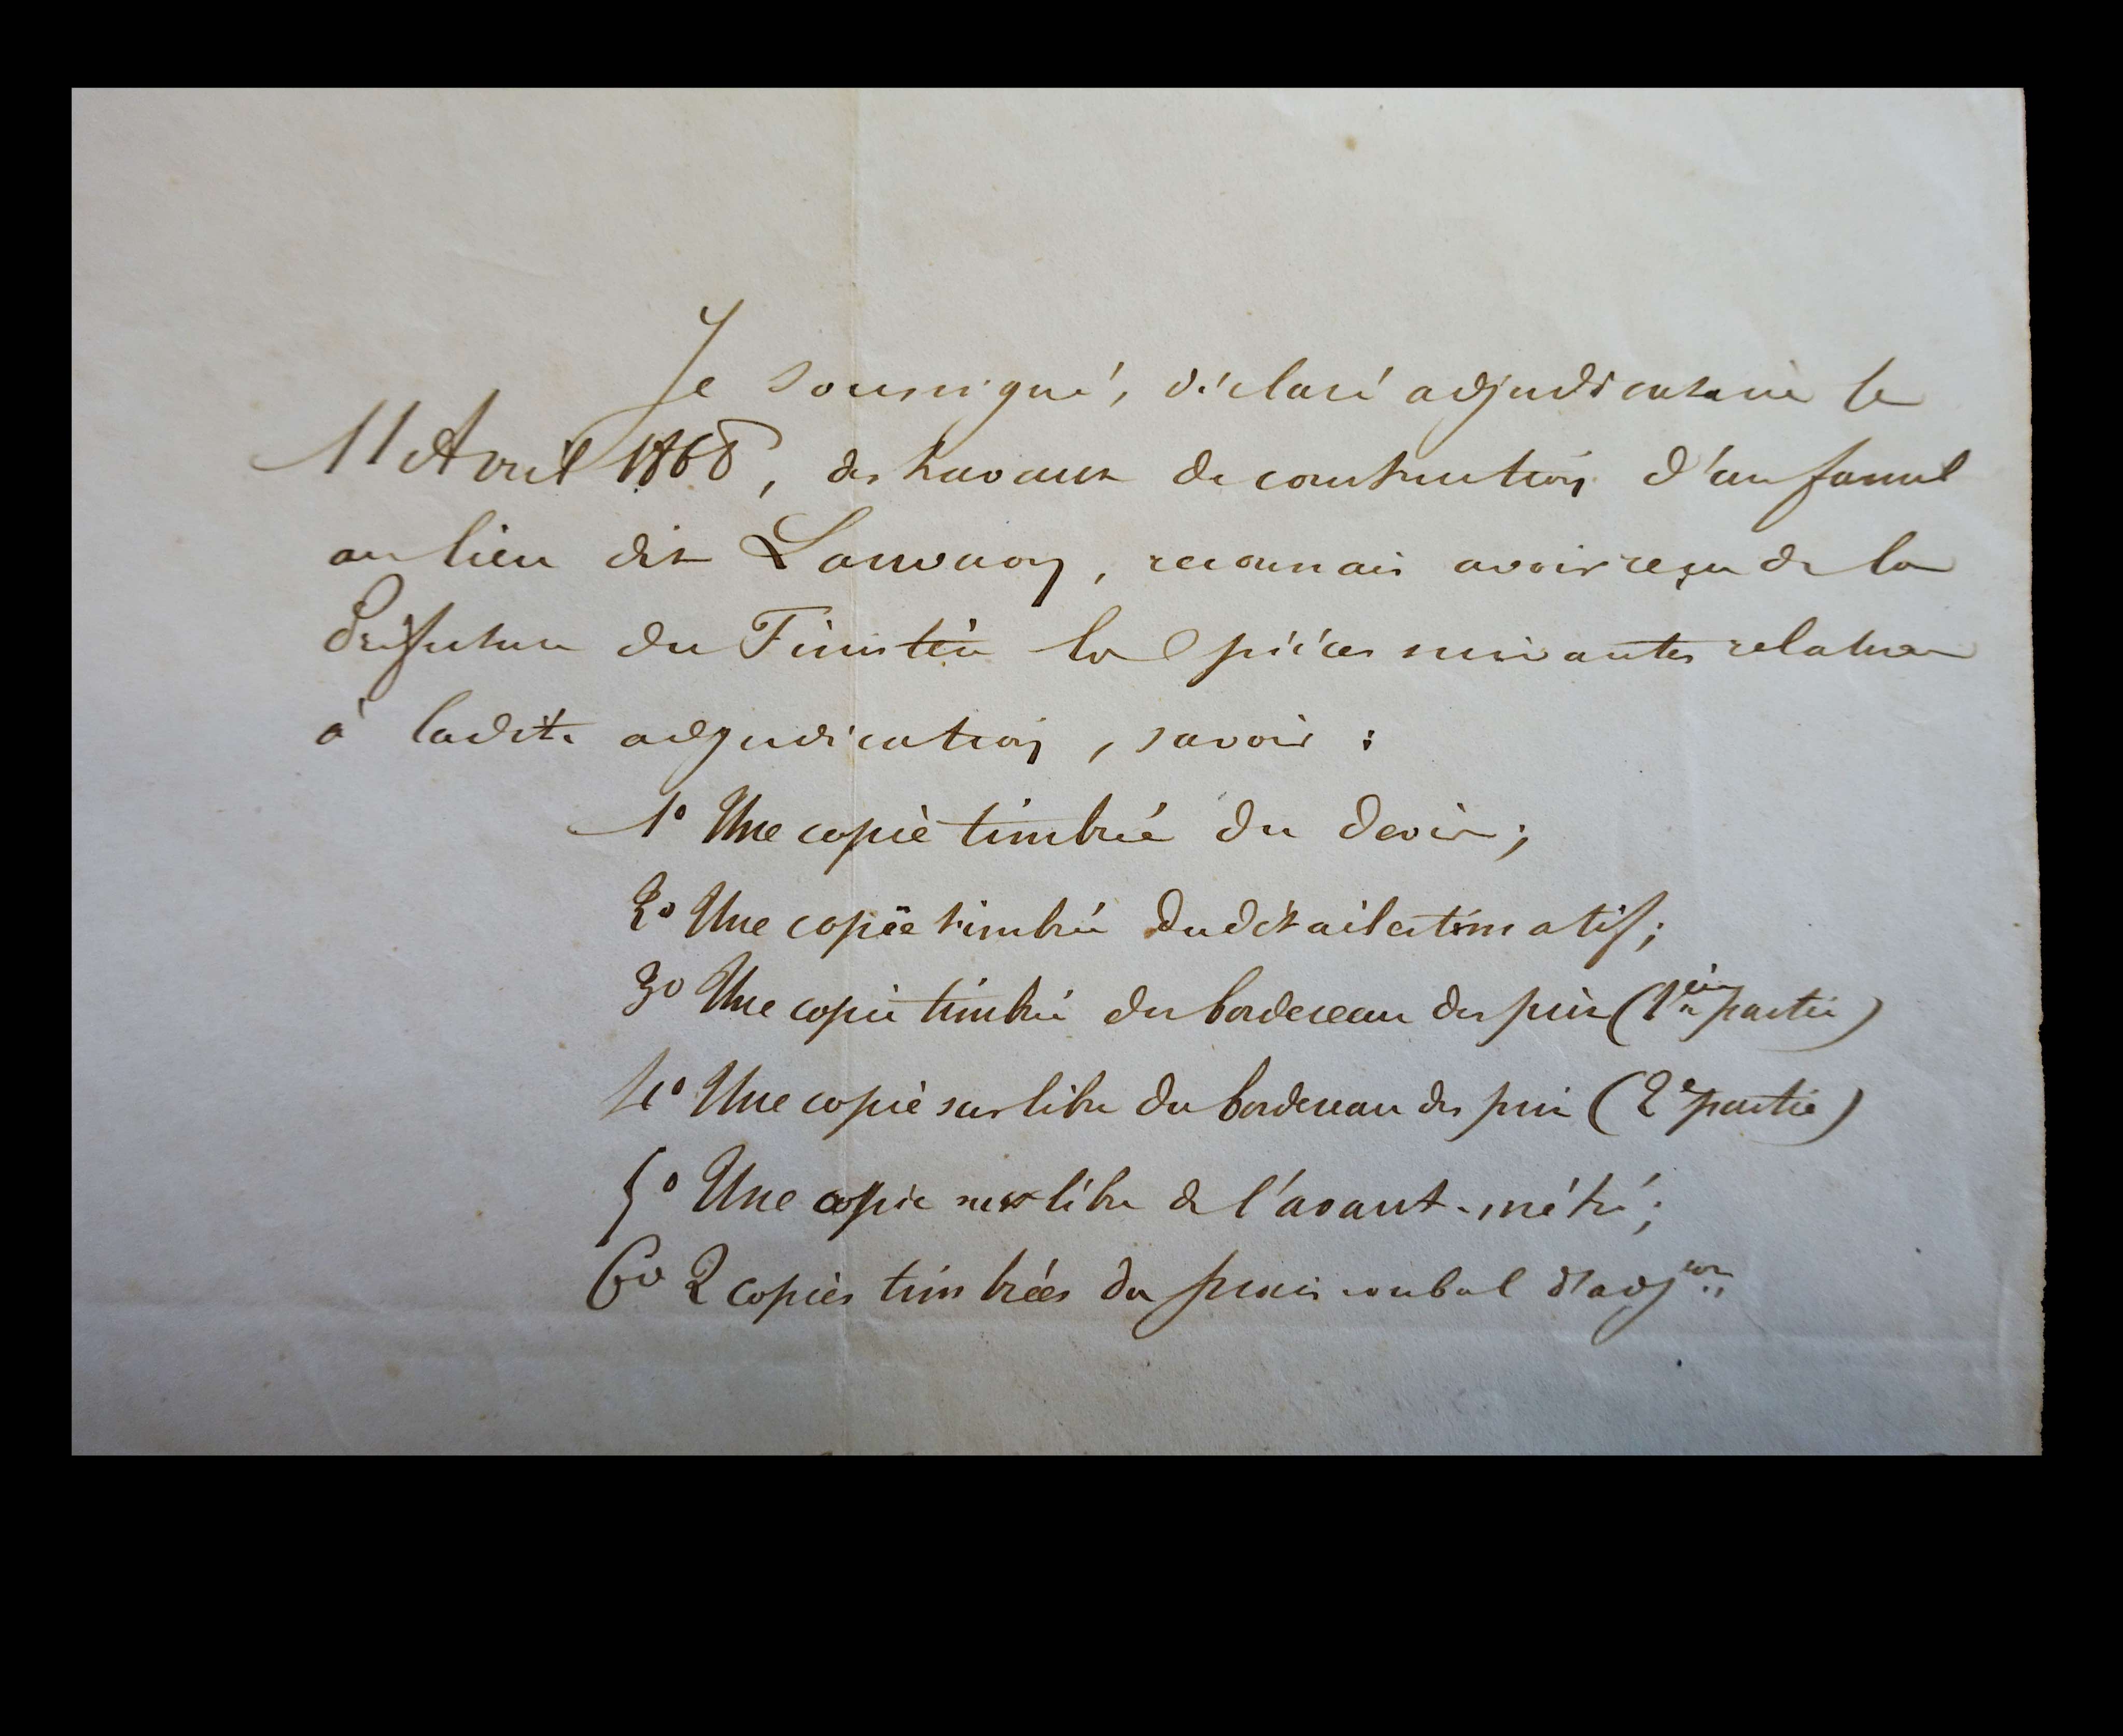 Je soussigné, déclaré adjudicataire le
11 Avril 1868, des travaux de construction d'un fanal
au lieu dit Lanvaon, reconnais avoir reçu de la
Préfecture du Finistère les pièces suivantes relatives
à ladite adjudication, savoir :
1° Une copie timbrée du devis ;
2° Une copie timbrée du détail estimatif ;
3° Une copie timbrée du bordereau des prix (1ère partie)
4° Une copie sur libre du bordereau des prix (2e partie)
5° Une copie sur libre de l'avant-métré ;
6° 2 copies timbrées du procès verbal d'adjon